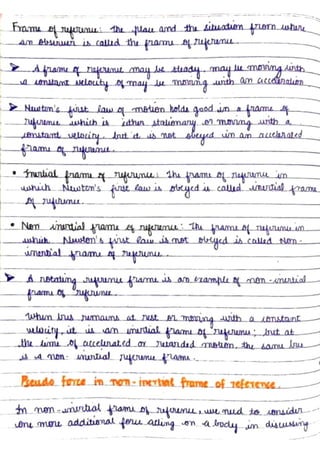 Frame of reference: The place and the situation from where
an observer is called the frame of reference.
A frame of reference may be steady, may be moving with
a constant velocity or may be moving with an acceleration
Newton's first law of motion holds good in a frame of
reference which is either stationary or moving with a
constant velocity. but it is not obeyed in an accelerated
frame of reference.
• Inertial frame of reference: The frame of reference in
which Newton's first law is obeyed is called inertial frame
of reference.
• Non inertial frame of reference: The frame of reference in
which Newton's first law is not obeyed is called Non-
inertial frame of reference.
A rotating reference frame is an example of non-inertial
frame of reference.
When bus remains at rest or moving with a constant
velocity, it is an inertial frame of reference; but at
the time of accelerated or retarded motion, the same bus
is a non-inertial reference frame.
Pseudo force in non-inertial frame of reference.
In non-inertial frame of reference, we need to consider
one more additional force acting on a body in discussing